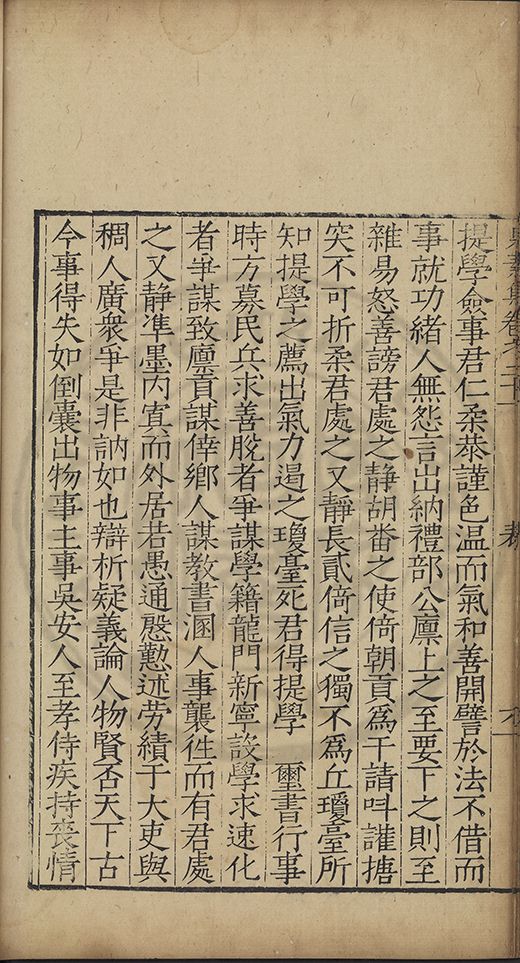 提學僉事君仁柔恭謹色温而氣和善開譬於法不借而
事就功緒人無怨言出納禮部公廪上之至要下之則至
雜易怒善謗君處之静胡畨之使倚朝貢爲干請呌讙搪
突不可折柔君處之又靜長貳倚信之獨不爲丘瓊臺所
知提學之薦出氣力遏之瓊臺死君得提學 璽書行事
時方募民兵求善脫者爭謀學籍龍門新寧設學求速化
者爭謀致廪貢謀倖鄉人謀敎書溷人事襲徃而有君處
之又静凖墨内寘而外居若愚通慇懃述劳績于大吏與
稠人廣衆爭是非訥如也辯析疑義論人物賢否天下古
今事得失如倒囊出物事主事吳安人至孝侍疾持喪情